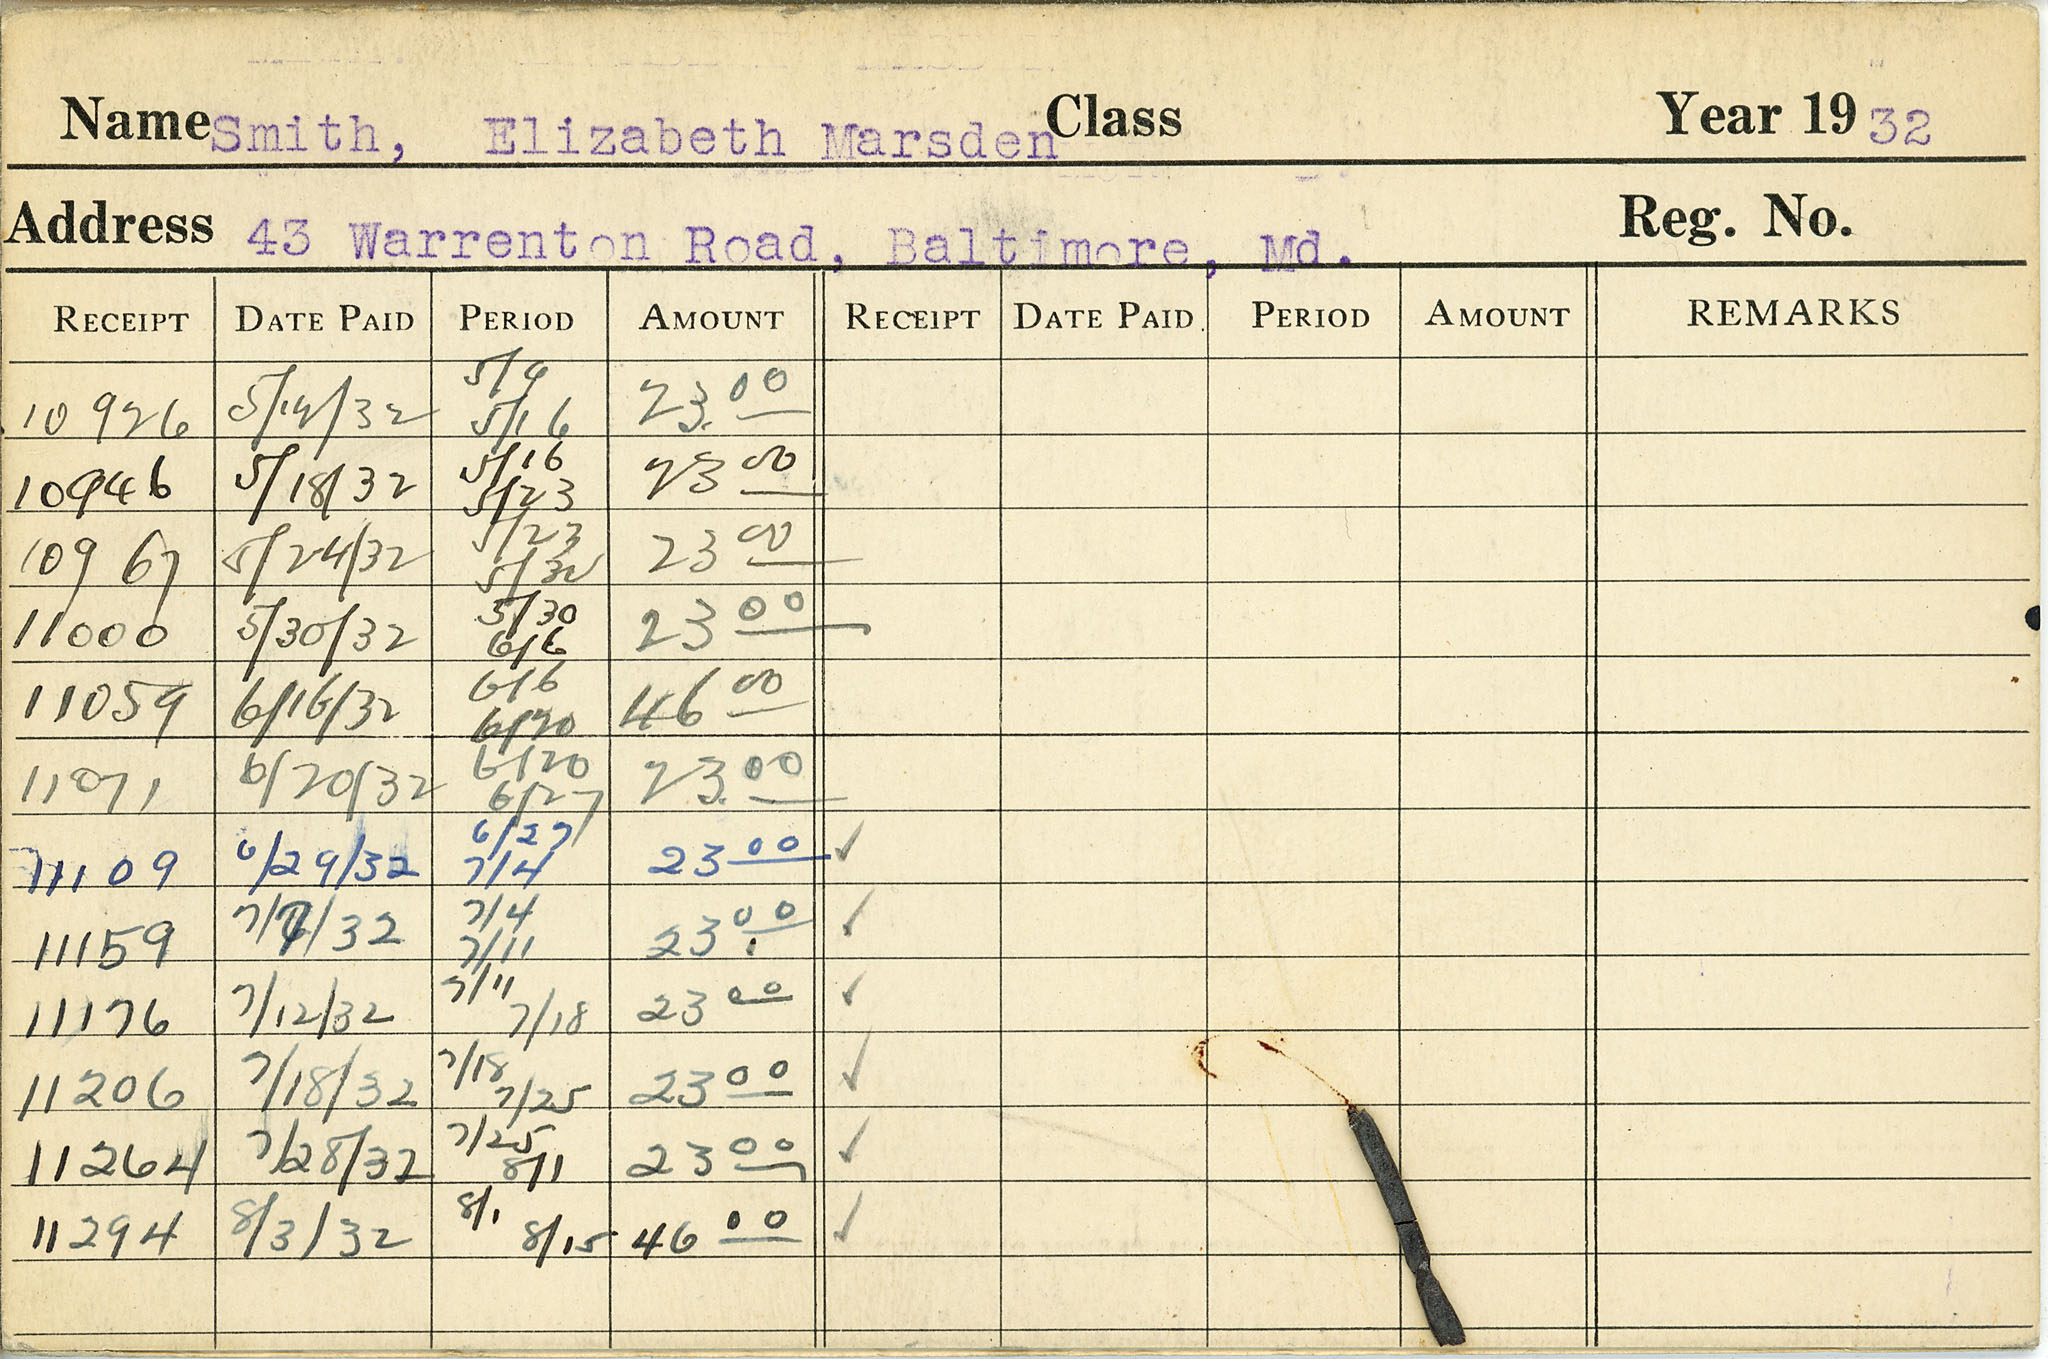 Name Smith, Elizabeth Marsden Class Year 19 32
Address 43 Warrenton Road, Baltimore, Md. Reg. No.
RECEIPT DATE PAID PERIOD AMOUNT RECEIPT DATE PAID PERIOD AMOUNT REMARKS
5/9
10926 5/12/32 5/16 23.00
5/16
10946 5/18/32 5/23 23 00
5/23
10967 5/24/32 5/30 23 00
5/30
11000 5/30/32 6/6 23 00
6/6
11059 6/16/32 6/20 46 00
6/20
11071 6/20/32 6/27 23.00
6/27
11109 6/29/32 7/4 23 00 ✓
7/4
11159 32 7/11 23 00 ✓
7/11
11176 7/12/32 7/18 23 00 ✓
7/18
11206 7/18/32 7/25 23 00 ✓
7/25
11264 7/28/32 8/1 23 00 ✓
8/1
11294 8/3/32 8/15 46 00 ✓